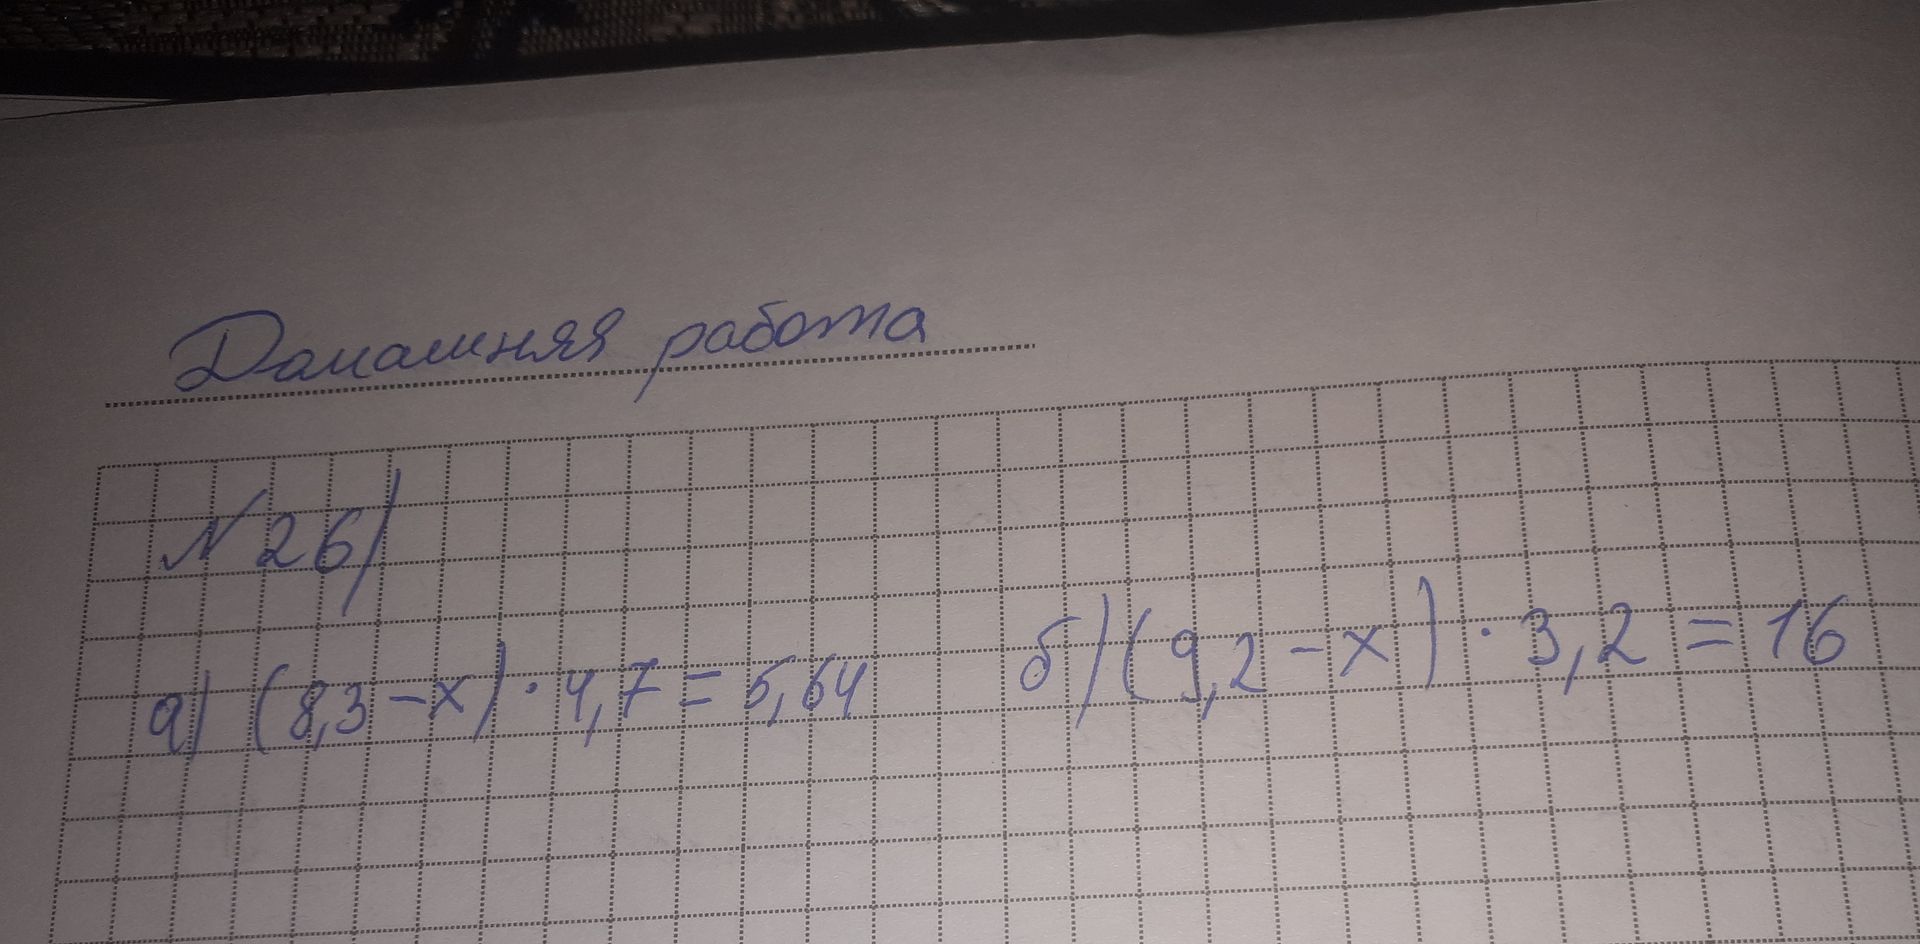 Домашняя работа
№ 26)
а) (8,3 - х) · 4,7 = 5,64
б) (9,2 - х) · 3,2 = 16